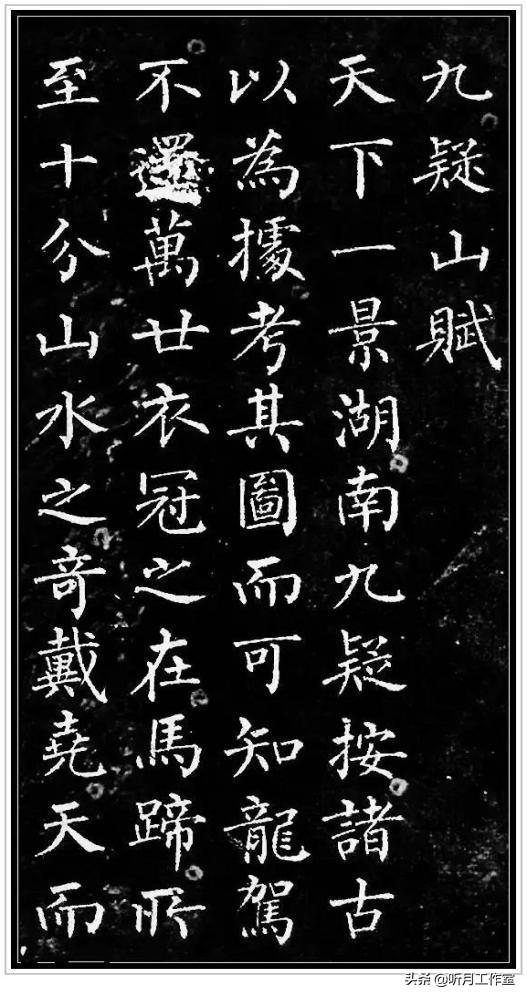 九疑山賦
天下一景湖南九疑按諸古
以為據考其圖而可知龍駕
不還萬廿衣冠之在馬蹄所
至十分山水之奇戴堯天而
头条 @听月工作室